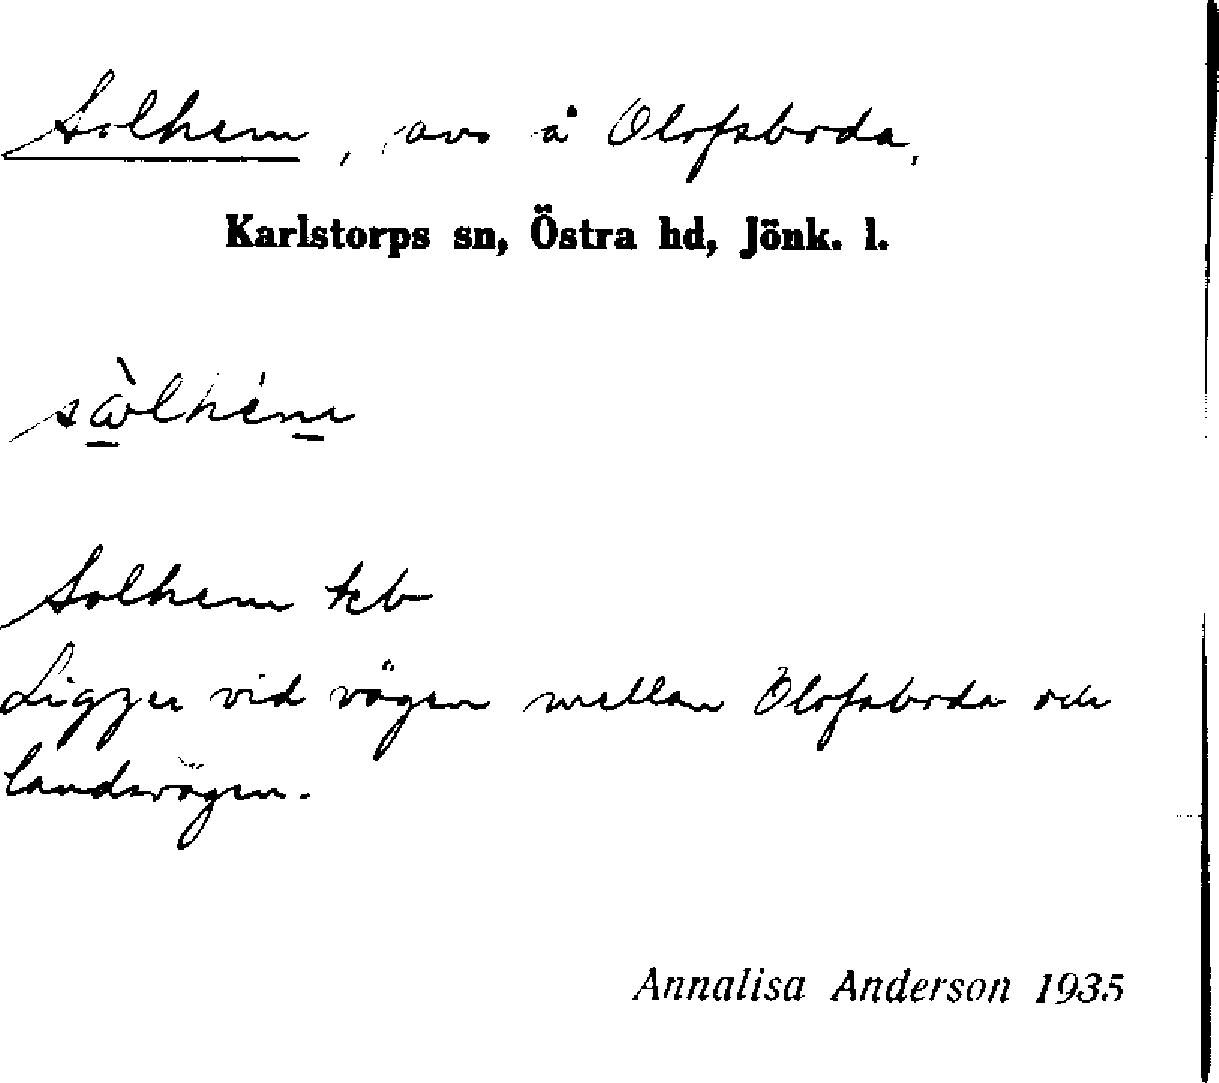 Solhem, avs å Olofsboda,
Karlstorps sn, Östra hd, Jönk. l.
Solhem kb
Ligger vid vägen mellan Olofsboda och
landsvägen.
Annalisa Anderson 1935